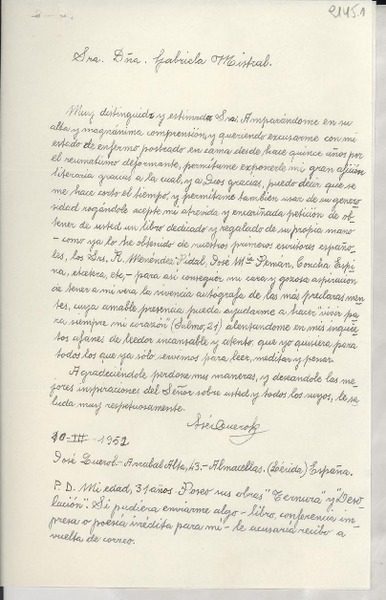 21451
Sra. Dña. Gabriela Mistral.
Muy distinguida y estimada Sra: Amparándome en su
alta y magnánima comprensión, y queriendo excusarme con mi
estado de enfermo postrado en cama desde hace quince años por
el reumatismo deformante, permítame exponerle mi gran afición
literaria gracias a la cual, y a Dios gracias, puedo decir que se
me hace corto el tiempo, y permítame también usar de su genero-
sidad rogándole acepte mi atrevida y encariñada petición de ob-
tener de usted un libro dedicado y regalado de su propia mano
-como ya lo he obtenido de nuestros primeros escritores españo-
les, los Srs. R. Menéndez Pidal, José Mª Pemán, Concha Espi-
na, etcétera, etc,- para así conseguir mi cara y gozosa aspiración
de tener a mi vera la vivencia autógrafa de las más preclaras men-
tes, cuya amable presencia pueda ayudarme a hacer "vivir pa-
ra siempre mi corazón" (Salmo, 21) alentándome en mis inquie-
tos afanes de lector incansable y atento, que yo quisiera para
todos los que ya solo servimos para leer, meditar y penar.
Agradeciéndole perdone mis maneras, y deseándole las me-
jores inspiraciones del Señor sobre usted y todos los suyos, le sa-
luda muy respetuosamente.
José Querol
10-III-1952
José Querol.- Arrabal Alta, 43.- Almacellas. (Lérida) España.
P.D. Mi edad, 31 años. Poseo sus obras "Ternura" y "Deso-
lación". Si pudiera enviarme algo - libro, conferencia im-
presa o poesía inédita para mí - le acusaría recibo a
vuelta de correo.